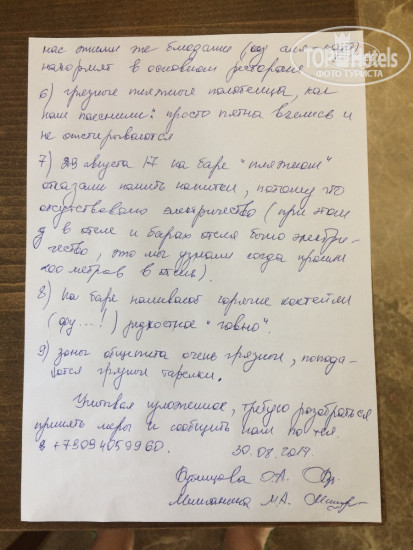 TOP Hotels
ФОТО ТУРИСТА
нас этими же блюдами
накормят в основном ресторане
6) грязные пляжные полотенца, как
нам пояснили: просто пятна въелись и
не отстирываются
7) 29 августа 17 на баре "пляжном"
отказали налить напитки, потому что
отсутствовало электричество (при этом
в отеле и барах отеля было электри-
чество, это мы узнали когда прошли
200 метров в отель).
8) на баре наливают горячие коктейли
(фу...!) редкостное "говно".
9) зоны общепита очень грязные, попада-
ются грязные тарелки.
Учитывая изложенное, требую разобраться
принять меры и сообщить нам по тел.
+79094059960. 30.08.2017.
О.А.
М.А.